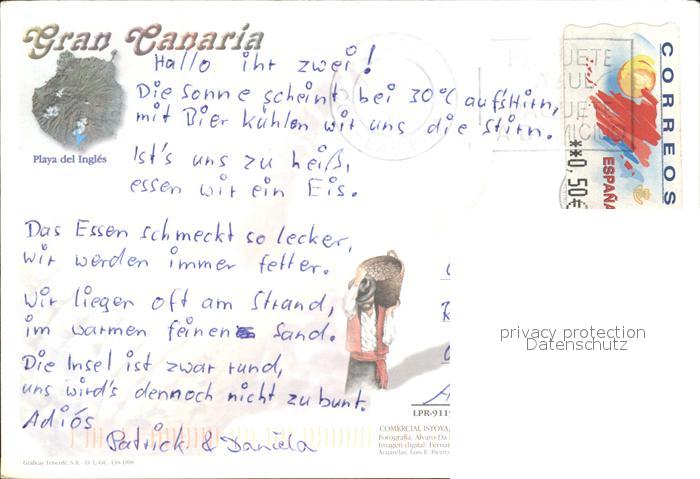 Gran Canaria
Playa del Inglés
Hallo ihr zwei!
Die Sonne scheint bei 30°C auf's Hirn,
mit Bier kühlen wir uns die Stirn.
Ist's uns zu heiß,
essen wir ein Eis.
Das Essen schmeckt so lecker,
wir werden immer fetter.
Wir liegen oft am Strand,
im warmen feinen Sand.
Die Insel ist zwar rund,
uns wird's dennoch nicht zu bunt.
Adiós
Patrick & Daniela
CORREOS
ESPAÑA
**0,50€
privacy protection
Datenschutz
LPR-911
COMERCIAL ISTOYA
Fotografía. Alvaro Da
Imagen digital: Fernan
Acuarelas: Luis E. Fierro
Gráficas Tenerife, S.A. - D. L. GC. 138-1998